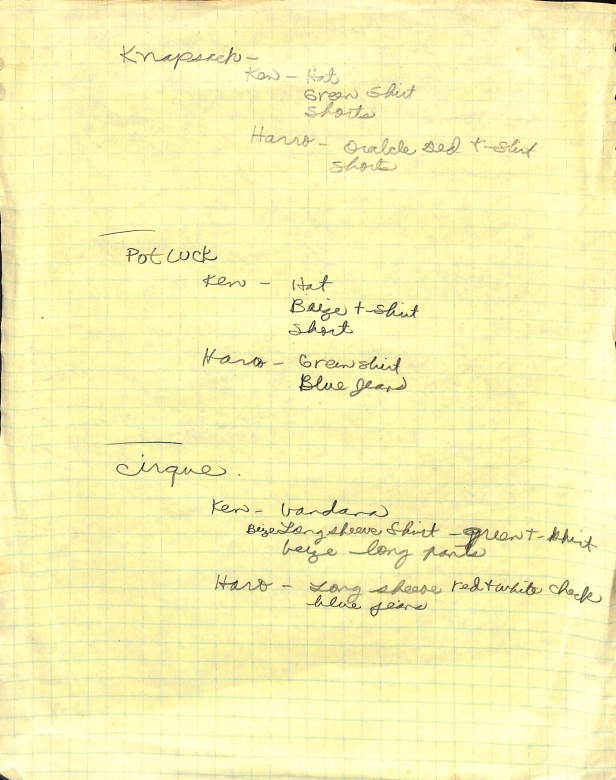 Knapsack -
Ken - Hat
Green Shirt
Shorts
Harro - red t-shirt
shorts
Pot Luck
Ken - Hat
Baize t-shirt
short
Haro - Green shirt
Blue Jeans
Cirque.
Ken - bandana
Beize Long sheeve Shirt - green t-shirt
beize long pants
Haro - Long sheeve red + white check
blue jeans